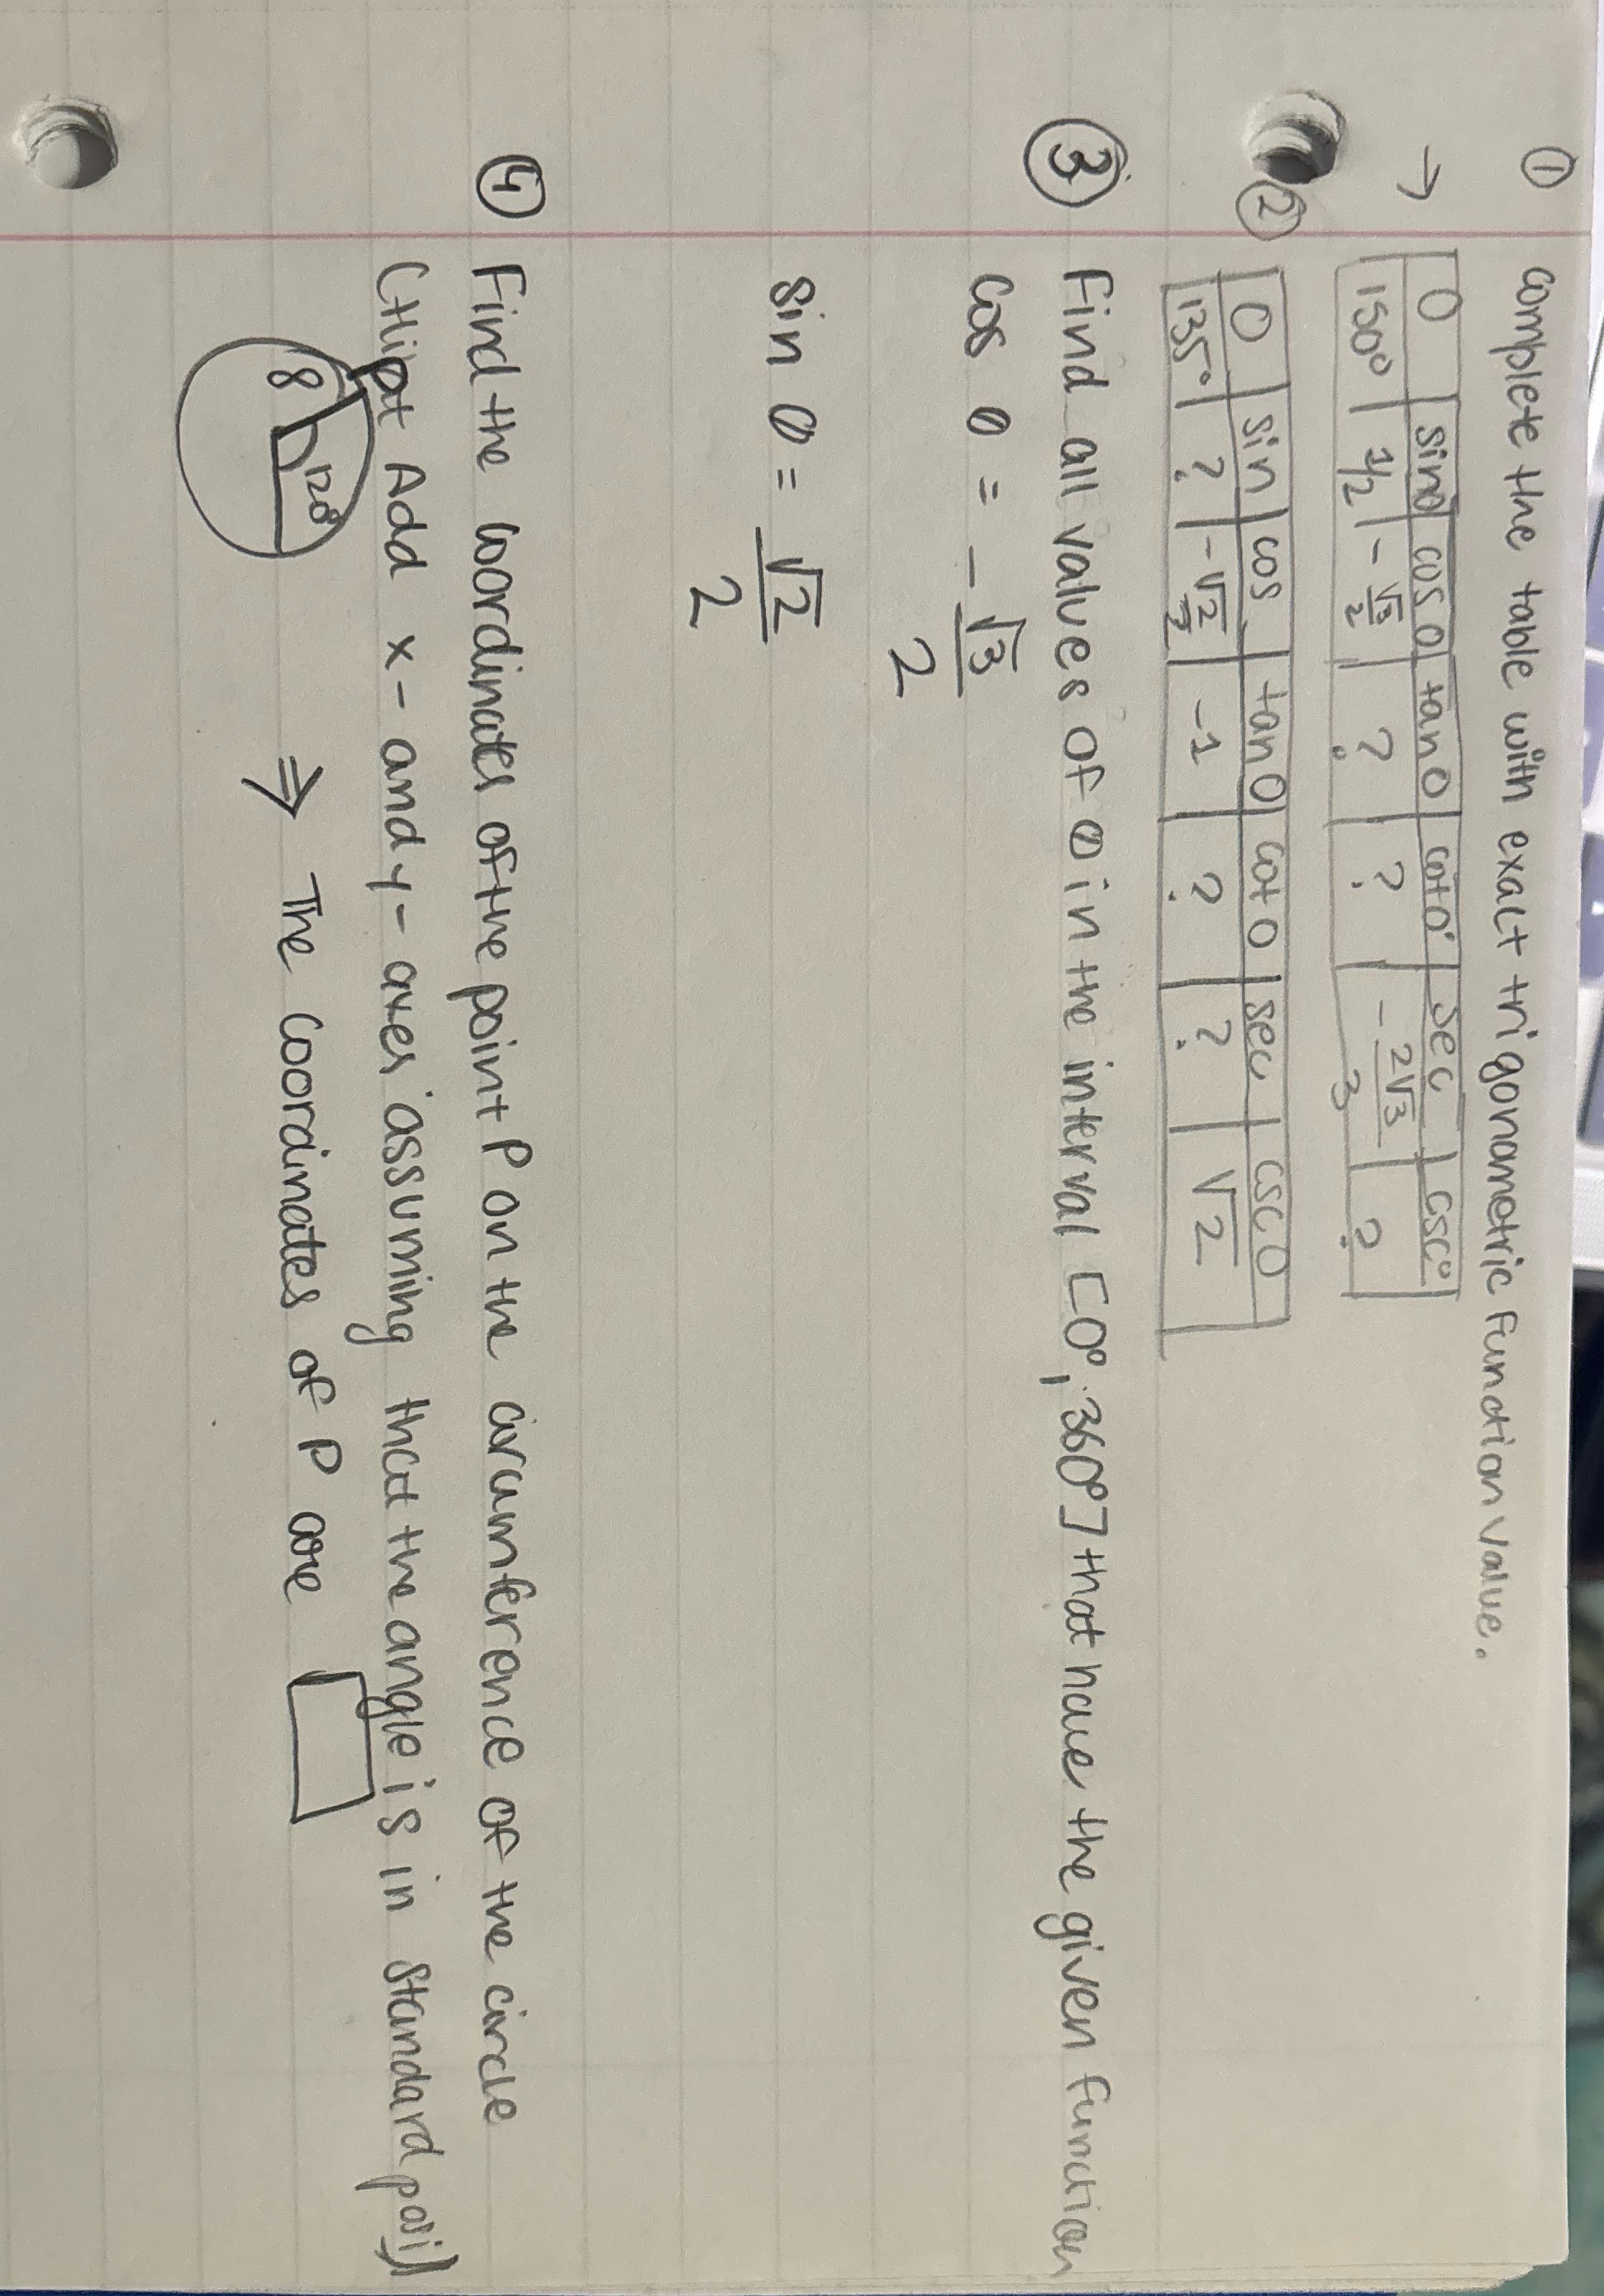 ① complete the table with exact trigonometric function value.
→ θ sinθ cosθ tanθ cotθ sec cscθ
150° 1/2 -√3/2 ? ? -2√3/3 ?
② θ sin cos tanθ cotθ sec cscθ
135° ? -√2/2 -1 ? ? √2
③ Find all values of θ in the interval [0°, 360°] that have the given function
cos θ = -√3/2
sin θ = √2/2
④ Find the coordinates of the point P on the circumference of the circle
(Hint Add x- and y- axes assuming that the angle is in standard
P
8 120°
⇒ The coordinates of P are